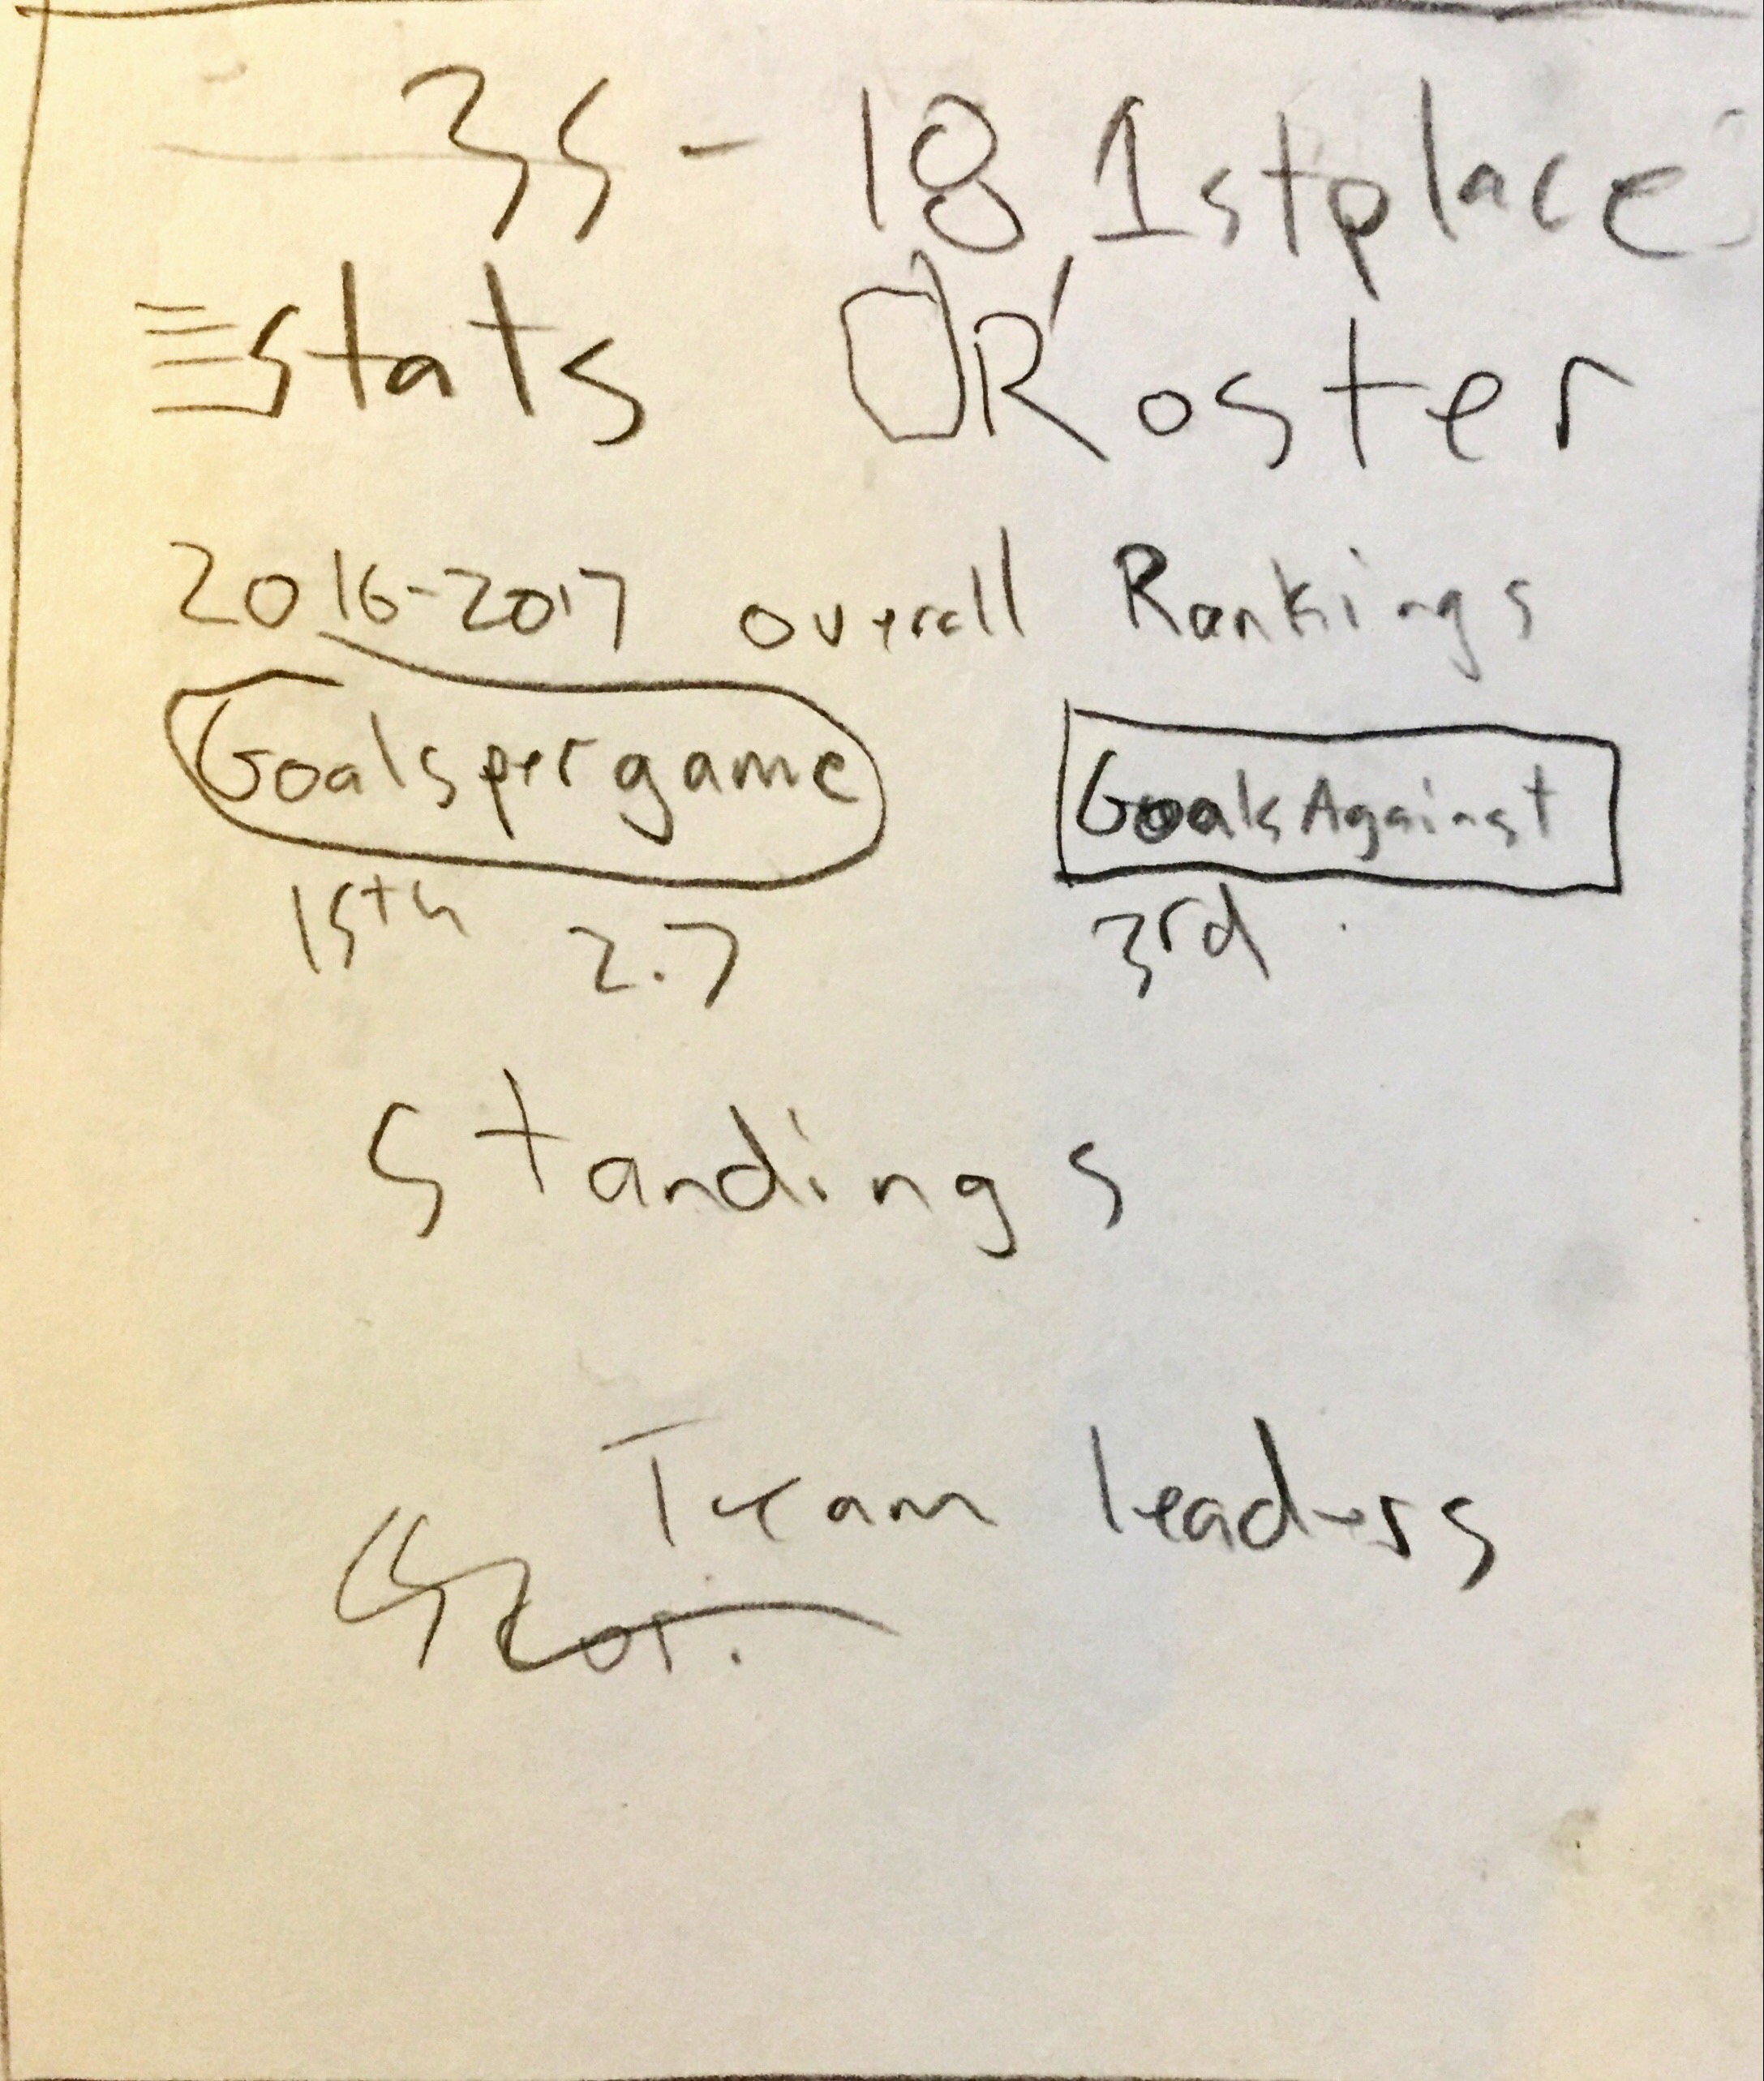 35 - 18, 1st place
stats Roster
2016-2017 overall Rankings
Goals per game Goals Against
15th 2.7 3rd
Standings
Team leaders